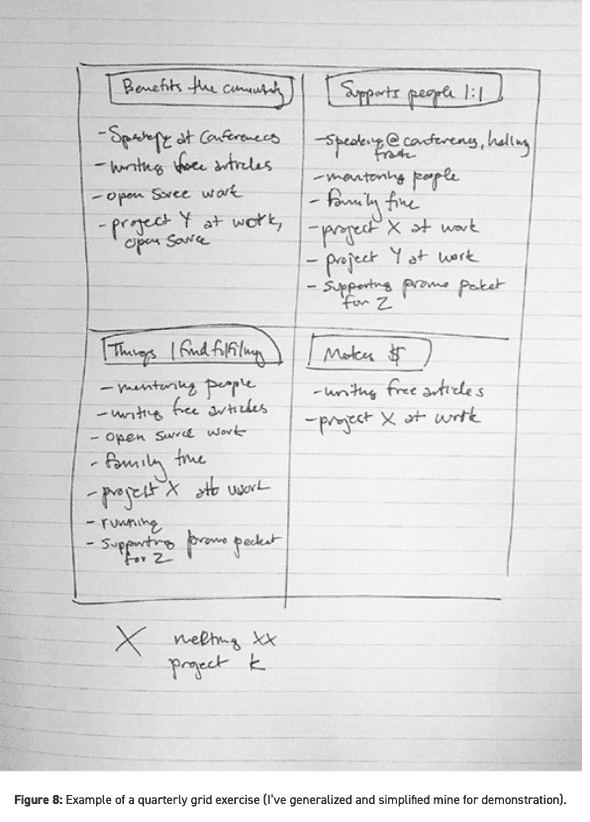 Benefits the community
- Speaking at Conferences
- writing free articles
- open source work
- project Y at work,
open source
Supports people 1:1
- Speaking @ conference, hallway
track
- mentoring people
- family time
- project X at work
- project Y at work
- Supporting promo packet
for Z
Things I find fulfilling
- mentoring people
- writing free articles
- open source work
- family time
- project X at work
- running
- Supporting promo packet
for Z
Makes $
- writing free articles
- project X at work
X meeting XX
project K
Figure 8: Example of a quarterly grid exercise (I've generalized and simplified mine for demonstration).